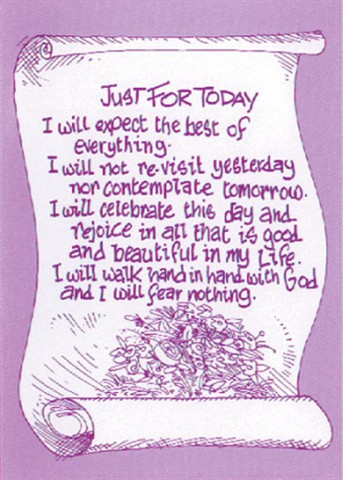 JUST FOR TODAY
I will expect the best of
everything.
I will not re-visit yesterday
nor contemplate tomorrow.
I will celebrate this day and
rejoice in all that is good
and beautiful in my Life.
I will walk hand in hand with God
and I will fear nothing.